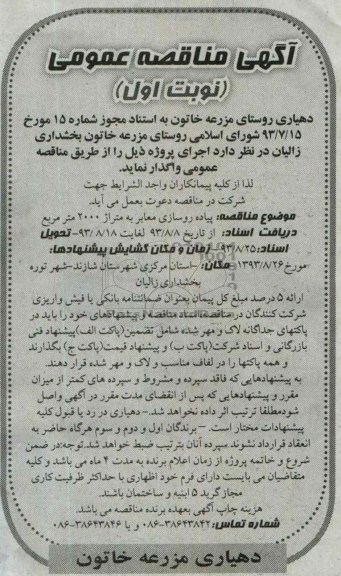 آگهی مناقصه عمومی
(نوبت اول)
دهیاری روستای مزرعه خاتون به استناد مجوز شماره ۱۵ مورخ
۹۳/۷/۱۵ شورای اسلامی روستای مزرعه خاتون بخشداری
زالیان در نظر دارد اجرای پروژه ذیل را از طریق مناقصه
عمومی واگذار نماید.
لذا از کلیه پیمانکاران واجد الشرایط جهت
شرکت در مناقصه دعوت بعمل می آید.
موضوع مناقصه: پیاده روسازی معابر به متراژ ۲۰۰۰ متر مربع
دریافت اسناد: از تاریخ ۹۳/۸/۸ لغایت ۹۳/۸/۱۸- تحویل
اسناد: ۹۳/۸/۲۵- زمان و مکان گشایش پیشنهادها:
مورخ ۱۳۹۳/۸/۲۶- مکان: -استان مرکزی شهرستان شازند-شهر توره
بخشداری زالیان
ارائه ۵ درصد مبلغ کل پیمان بعنوان ضمانتنامه بانکی یا فیش واریزی
شرکت کنندگان در مناقصه اسناد مناقصه و پیشنهادهای خود را باید در
پاکتهای جداگانه لاک و مهر شده شامل تضمین(پاکت الف)پیشنهاد فنی
بازرگانی و اسناد شرکت(پاکت ب) و پیشنهاد قیمت(پاکت ج) بگذارند
و همه پاکتها را در لفاف مناسب و لاک و مهر شده قرار دهند.
به پیشنهادهایی که فاقد سپرده و مشروط و سپرده های کمتر از میزان
مقرر و پیشنهادهایی که پس از انقضای مدت مقرر در آگهی واصل
شود مطلقا ترتیب اثر داده نخواهد شد.- دهیاری در رد یا قبول کلیه
پیشنهادات مختار است. - برندگان اول و دوم و سوم هرگاه حاضر به
انعقاد قرارداد نشوند سپرده آنان بترتیب ضبط خواهد شد.توجه:در ضمن
شروع و خاتمه پروژه از زمان اعلام برنده به مدت ۴ ماه می باشد و کلیه
متقاضیان می بایست دارای فرم خود اظهاری با حداکثر ظرفیت کاری
مجاز گرید ۵ ابنیه و ساختمان باشند.
هزینه چاپ آگهی بعهده برنده مناقصه می باشد.
شماره تماس: ۳۸۶۴۳۸۴۲-۰۸۶ و یا ۳۸۶۴۳۸۴۶-۰۸۶
دهیاری مزرعه خاتون